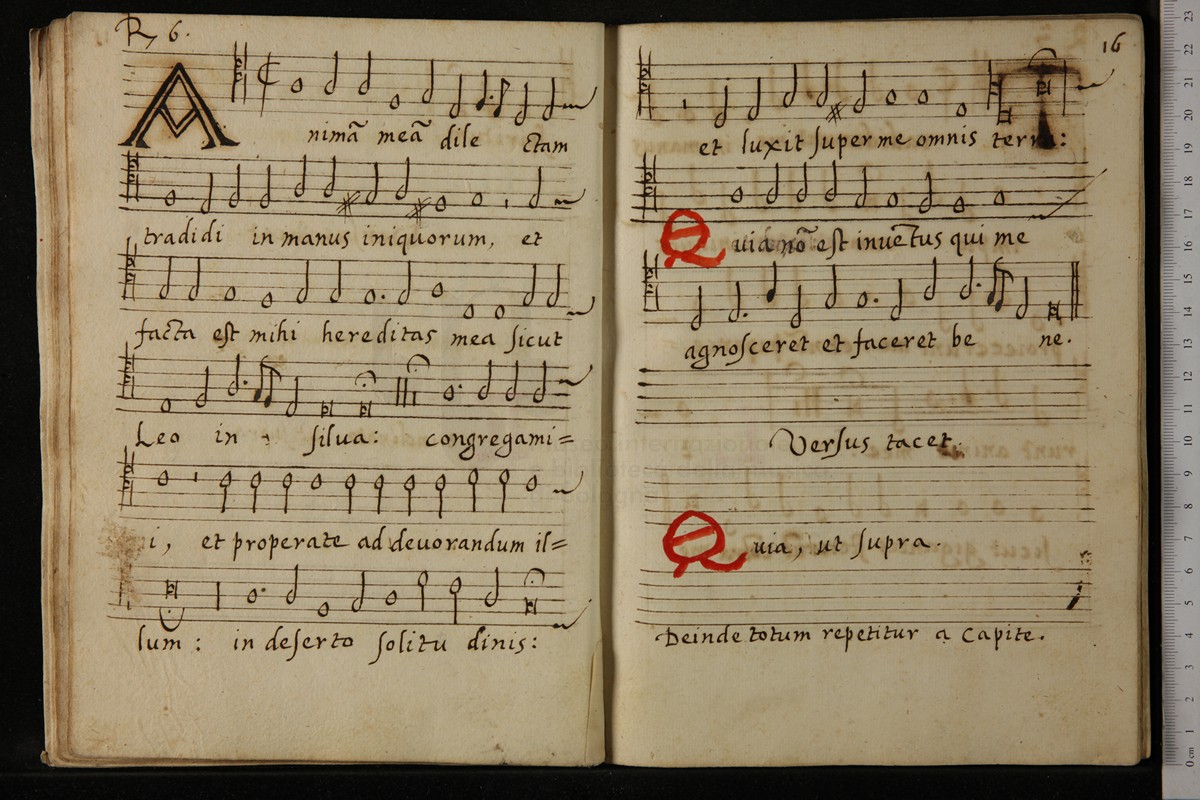 R 6.
Animā meā dilectam
tradidi in manus iniquorum, et
facta est mihi hereditas mea sicut
Leo in silua: congregami=
ni, et properate ad deuorandum il=
lum: in deserto solitudinis:
16
et luxit super me omnis terra:
Quia nō est inuētus qui me
agnosceret et faceret bene.
Versus tacet.
Quia, ut supra.
Deinde totum repetitur a Capite.